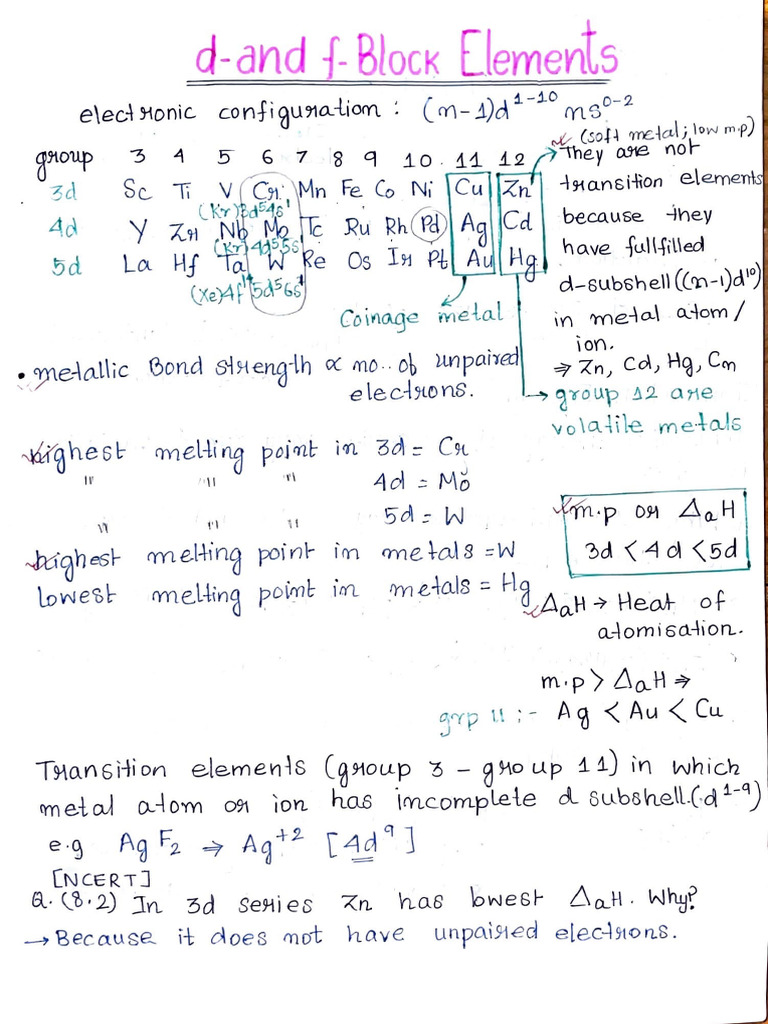 d-and f-Block Elements
electronic configuration : (n-1)d¹⁻¹⁰ ns⁰⁻²
(soft metal; low m.p)
group 3 4 5 6 7 8 9 10 11 12
3d Sc Ti V Cr Mn Fe Co Ni Cu Zn
(Kr)3d⁵4s¹
4d Y Zr Nb Mo Tc Ru Rh Pd Ag Cd
(Kr)4d⁵5s¹
5d La Hf Ta W Re Os Ir Pt Au Hg
(Xe)4f¹⁴5d⁵6s¹
Coinage metal
They are not
transition elements
because they
have fullfilled
d-subshell((n-1)d¹⁰)
in metal atom/
ion.
⇒ Zn, Cd, Hg, Cn
→ group 12 are
volatile metals
• metallic Bond strength ∝ no.. of unpaired
electrons.
highest melting point in 3d = Cr
" " " 4d = Mo
" " " 5d = W
highest melting point in metals = W
lowest melting point in metals = Hg
m.p or ΔaH
3d < 4d < 5d
ΔaH → Heat of
atomisation.
m.p > ΔaH ⇒
grp 11 :- Ag < Au < Cu
Transition elements (group 3 - group 11) in which
metal atom or ion has incomplete d subshell.(d¹⁻⁹)
e.g AgF₂ ⇒ Ag⁺² [4d⁹]
[NCERT]
Q. (8.2) In 3d series Zn has lowest ΔaH. Why?
→ Because it does not have unpaired electrons.